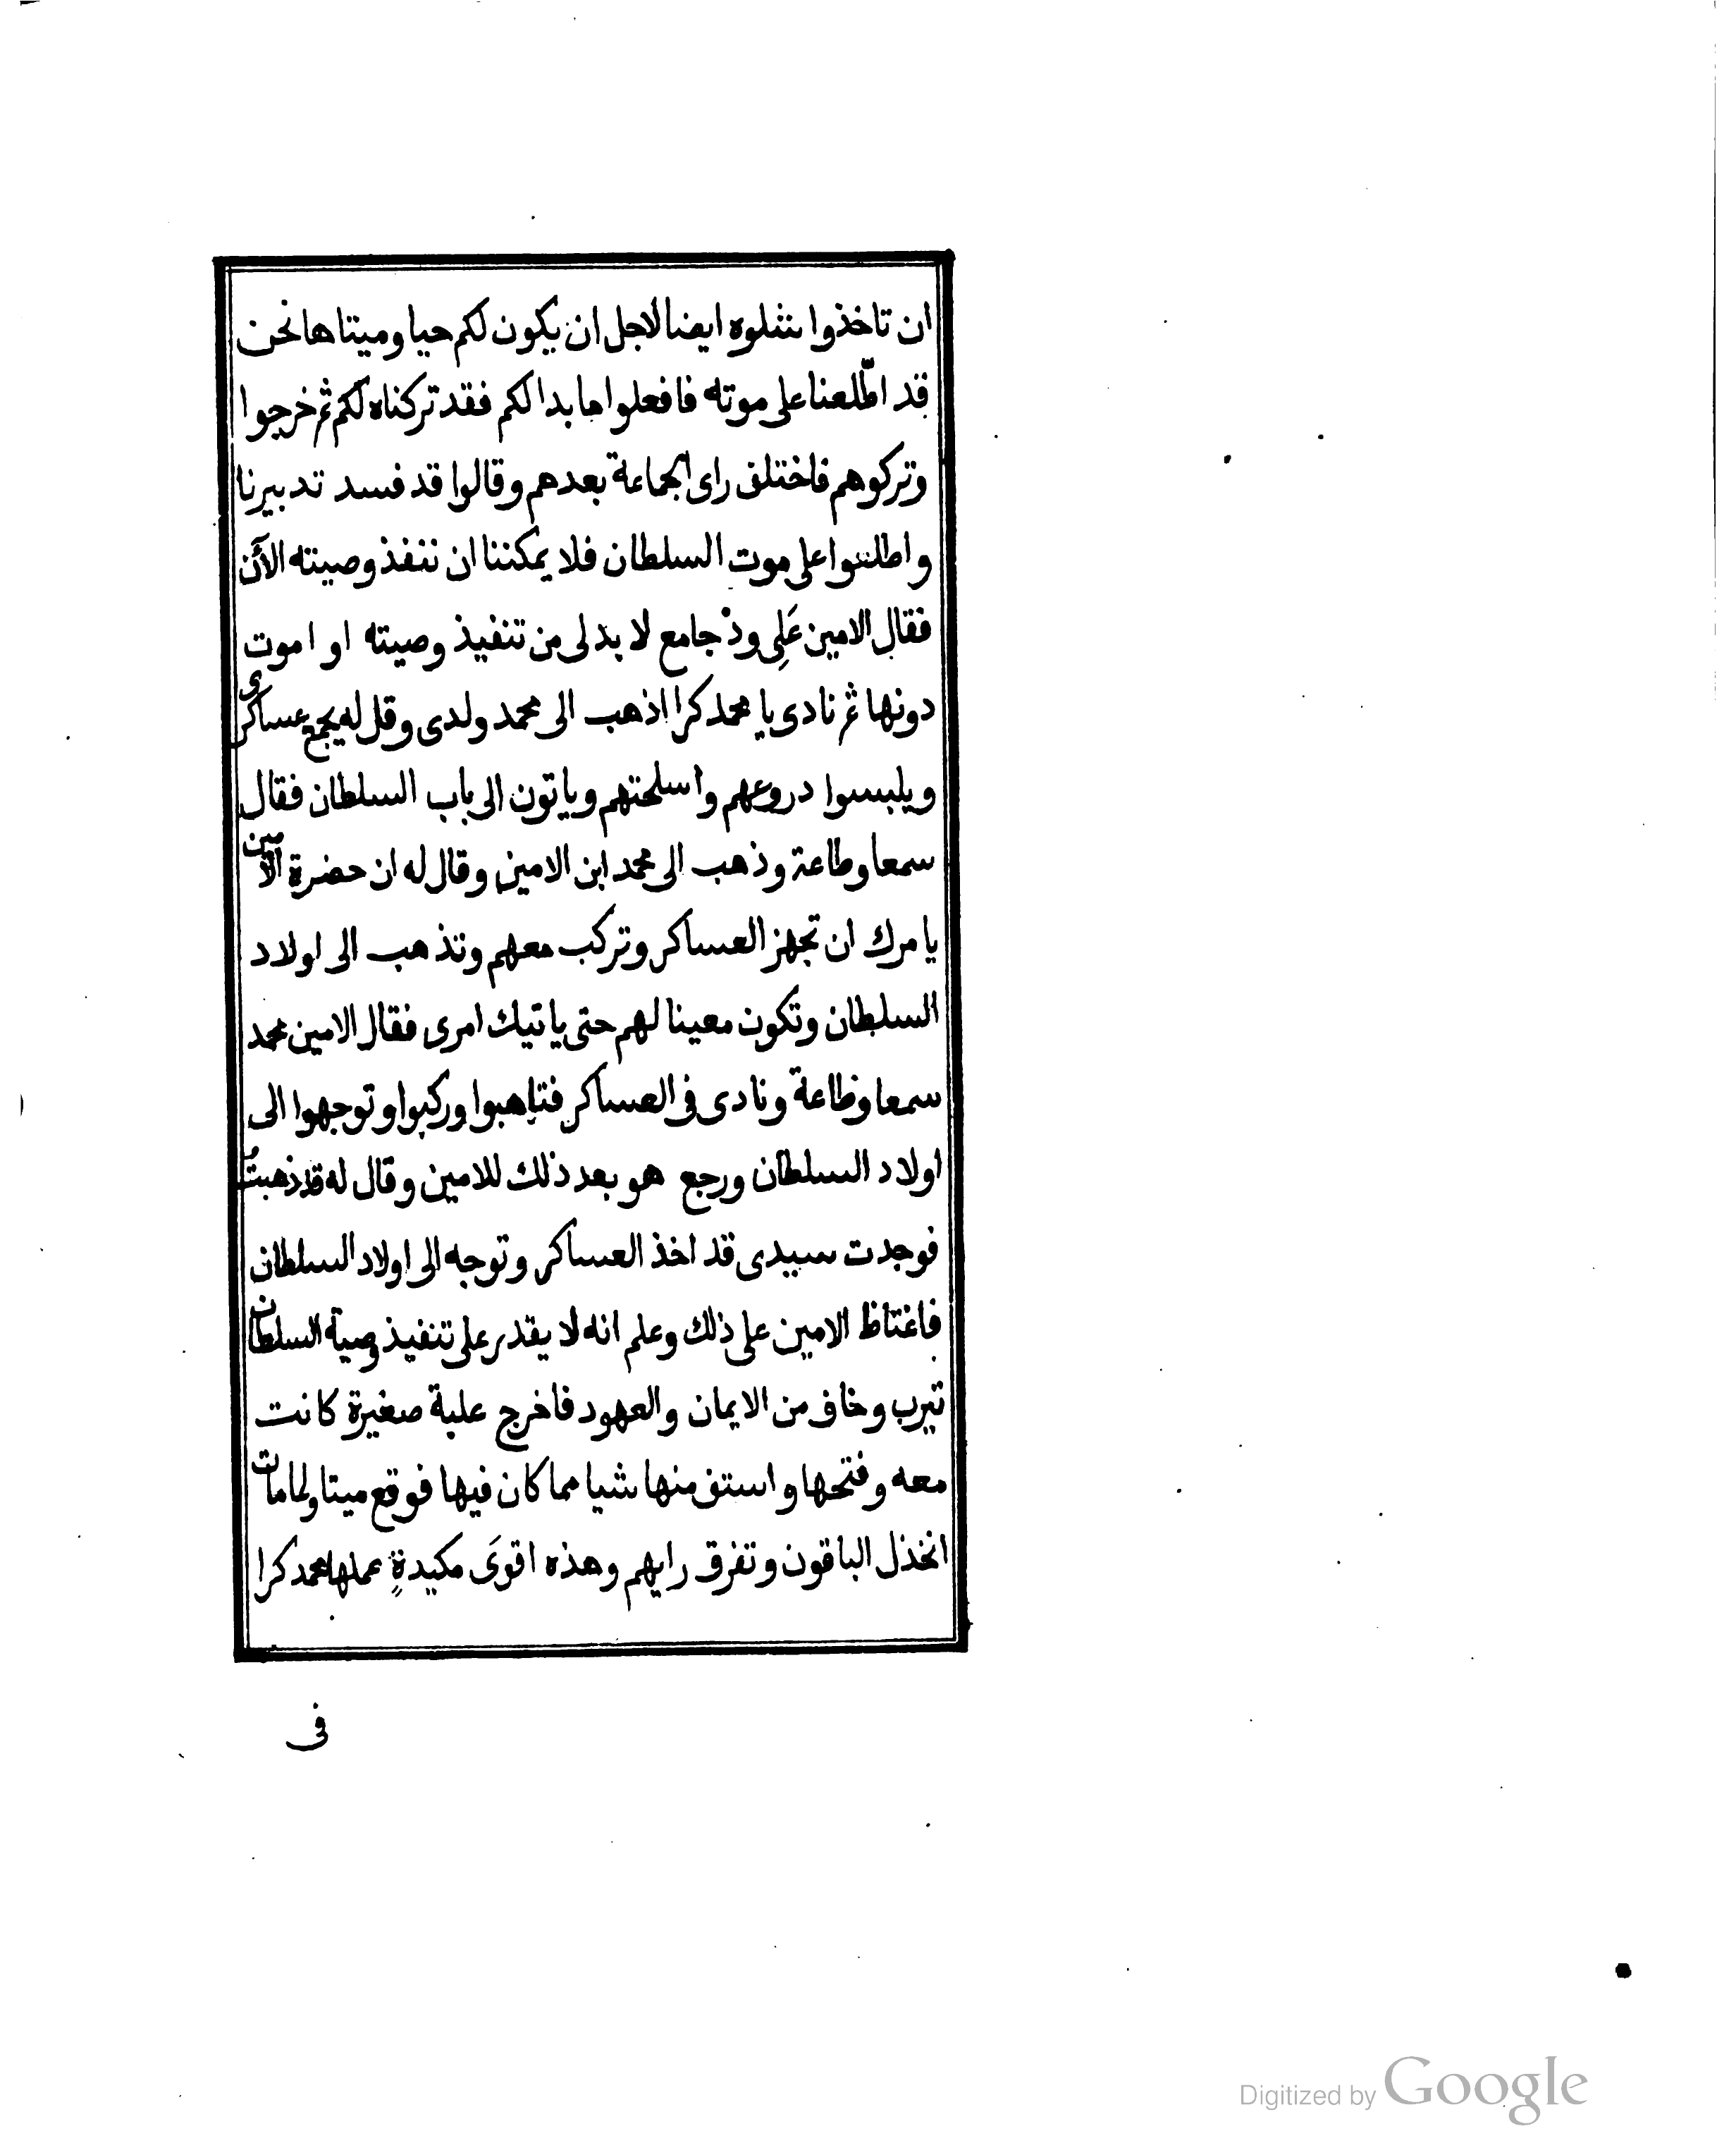 ان تاخذوا شلوه ايضا لاجل ان يكون لكم حيا وميتا ها نحن
قد اطّلعنا على موته فافعلوا ما بدا لكم فقد تركناه لكم ثم خرجوا
وتركوهم فاختلف راى الجماعة بعدهم وقالوا قد فسد تدبيرنا
واطلعوا على موت السلطان فلا يمكننا ان ننفذ وصيته الآن
فقال الامين عَلِى وذ جامع لا بد لى من تنفيذ وصيته او اموت
دونها ثم نادى يا محمد كرا اذهب الى محمد ولدى وقل له يجمع عساكرى
ويلبسوا دروعهم واسلحتهم وياتون الى باب السلطان فقال
سمعا وطاعة وذهب الى محمد ابن الامين وقال له ان حضرة الامين
يامرك ان تجهز العساكر وتركب معهم وتذهب الى اولاد
السلطان وتكون معينا لهم حتى ياتيك امرى فقال الامين محمد
سمعا وطاعة ونادى فى العساكر فتاهبوا وركبوا وتوجهوا الى
اولاد السلطان ورجع هو بعد ذلك للامين وقال له قد ذهبتُ
فوجدت سيدى قد اخذ العساكر وتوجه الى اولاد السلطان
فاغتاظ الامين على ذلك وعلم انه لا يقدر على تنفيذ وصية السلطان
تيرب وخاف من الايمان والعهود فاخرج علبة صغيرة كانت
معه وفتحها واستف منها شيا مما كان فيها فوقع ميتا ولما مات
انخذل الباقون وتفرق رايهم وهذه اقوَى مكيدةٍ عملها محمد كرا
فى
Digitized by Google